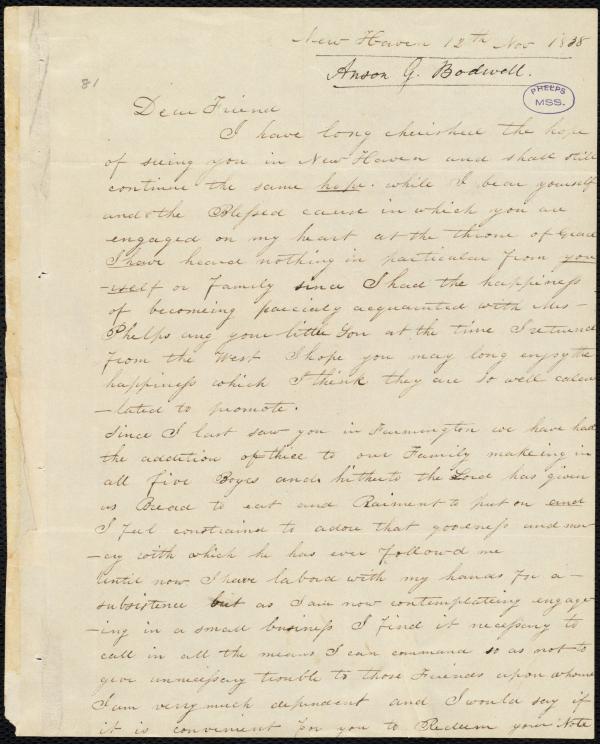 New Haven 12th Nov 1838
Anson G. Bodwell.
81
PHELPS
MSS.
Dear Friend
I have long cherished the hope
of seeing you in New Haven and shall still
continue the same hope. while I bear yourself
and the Blessed cause in which you are
engaged on my heart at the throne of Grace
I have heard nothing in particular from you
-rself or Family since I had the happiness
of becomeing parcialy acquainted with Mrs-
Phelps and your little Son at the time I returned
from the West. I hope you may long enjoy the
happiness which I think they are so well calcu
-lated to promote.
Since I last saw you in Farmington we have had
the addition of three to our Family makeing in
all five Boyes and hitherto the Lord has given
us Bread to eat and Raiment to put on and
I feel constraind to adore that goodness and mer
-cy with which he has ever followd me
Until now I have labord with my hands for a-
subsistence but as I am now contemplateing engage
-ing in a small business I find it necessary to
call in all the means I can command so as not to
give unnecessary trouble to those Friends upon whome
I am very much dependent and I would say if
it is convenient for you to Redeem your Note